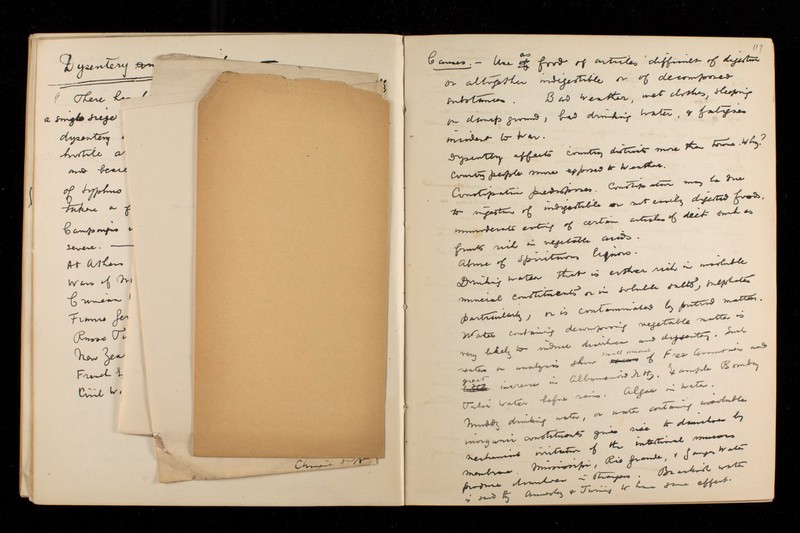 Dysentery
There
a single siege
dysentery
hostile a
and
of typhus
Campaigns
severe. —
At Athens
Wars of
Crimean
Franco Ger
Russo Tu
New Zea
French
Civil W.
119
Causes. - Use as food of articles difficult of digestion
or altogether indigestible or of decomposed
substances. Bad weather, wet clothes, sleeping
on damp ground, bad drinking water, & fatigues
incident to war.
Dysentery affects country districts more than towns. Why?
Country people more exposed to weather.
Constipation predisposes. Constipation may be due
to ingestion of indigestible or not easily digested foods,
immoderate eating of certain articles of diet such as
fruits rich in vegetable acids.
Abuse of Spirituous liquors.
Drinking water that is either rich in insoluble
mineral constituents or in soluble salts, sulphates
particularly, or is contaminated by putrid matter.
Water containing decomposing vegetable matter is
very likely to induce diarrhoea and dysentery. Such
water on analysis show small amount of Free Ammonia and
great increase in Albumenoid NH3. Example Bombay
water before rains. Algae in water.
Muddy drinking water, or water containing insoluble
inorganic constituents gives rise to diarrhoea by
mechanical irritation of the intestinal mucous
membrane. Mississipi, Rio Grande, & Ganges water
produce diarrhoea in strangers. Brackish water
is said by Annesley & Twining to have same effect.